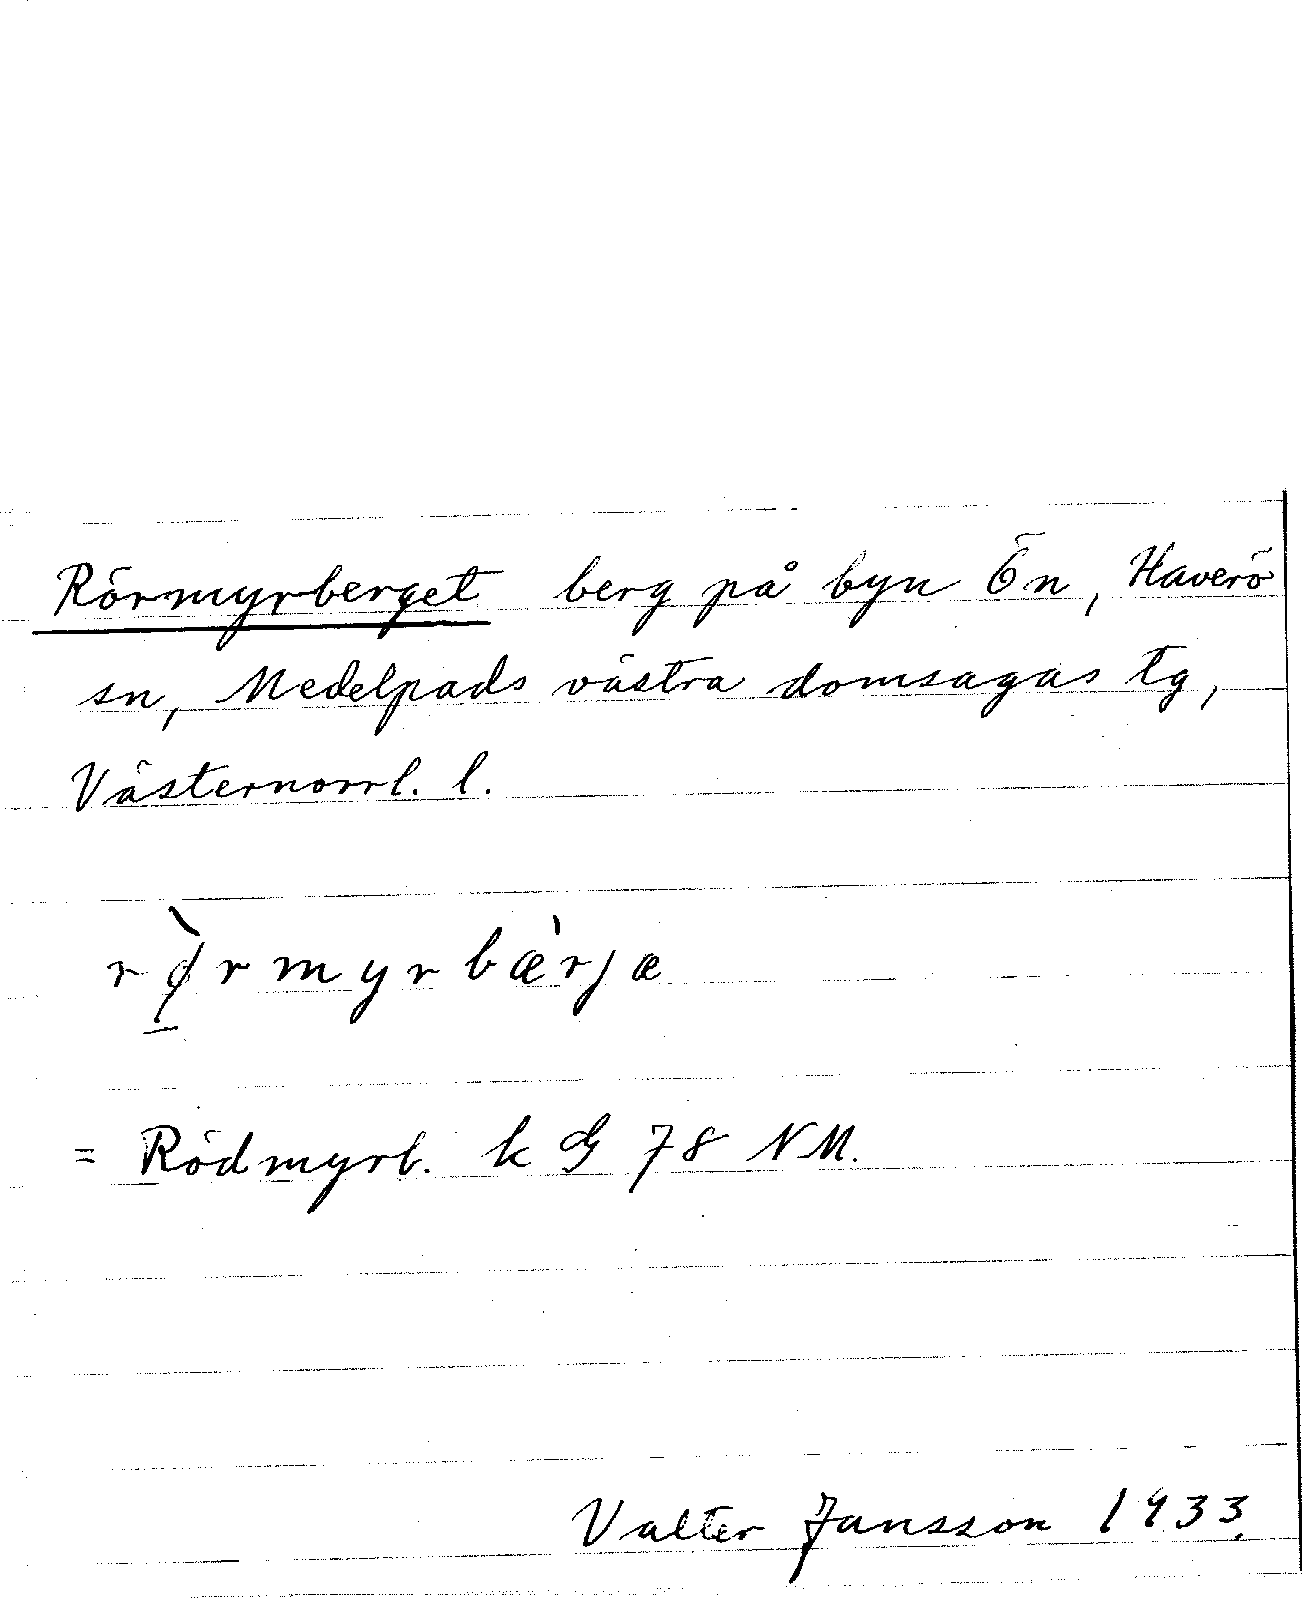 Rörmyrberget berg på byn Ön, Haverö
sn, Medelpads västra domsagas tg,
Västernorrl. l.
rø̱̀rmyrbæ̀rjæ
= Rödmyrb. k G 78 NM.
Valter Jansson 1933.